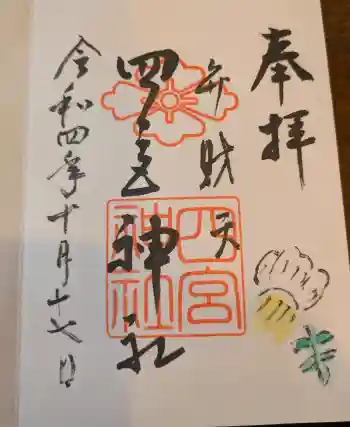 奉拝
弁財天
四宮神社
四宮神社
令和四年十月十七日